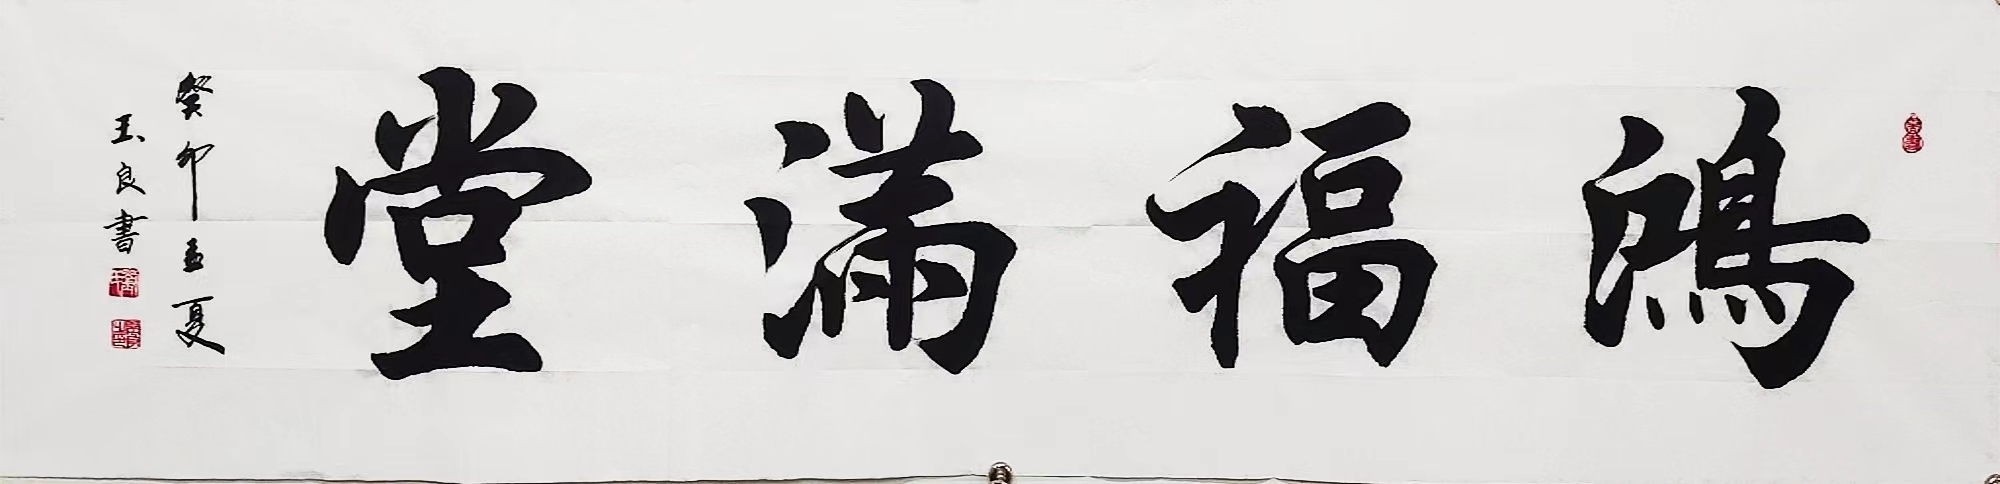 鴻福滿堂
癸卯孟夏
玉良書